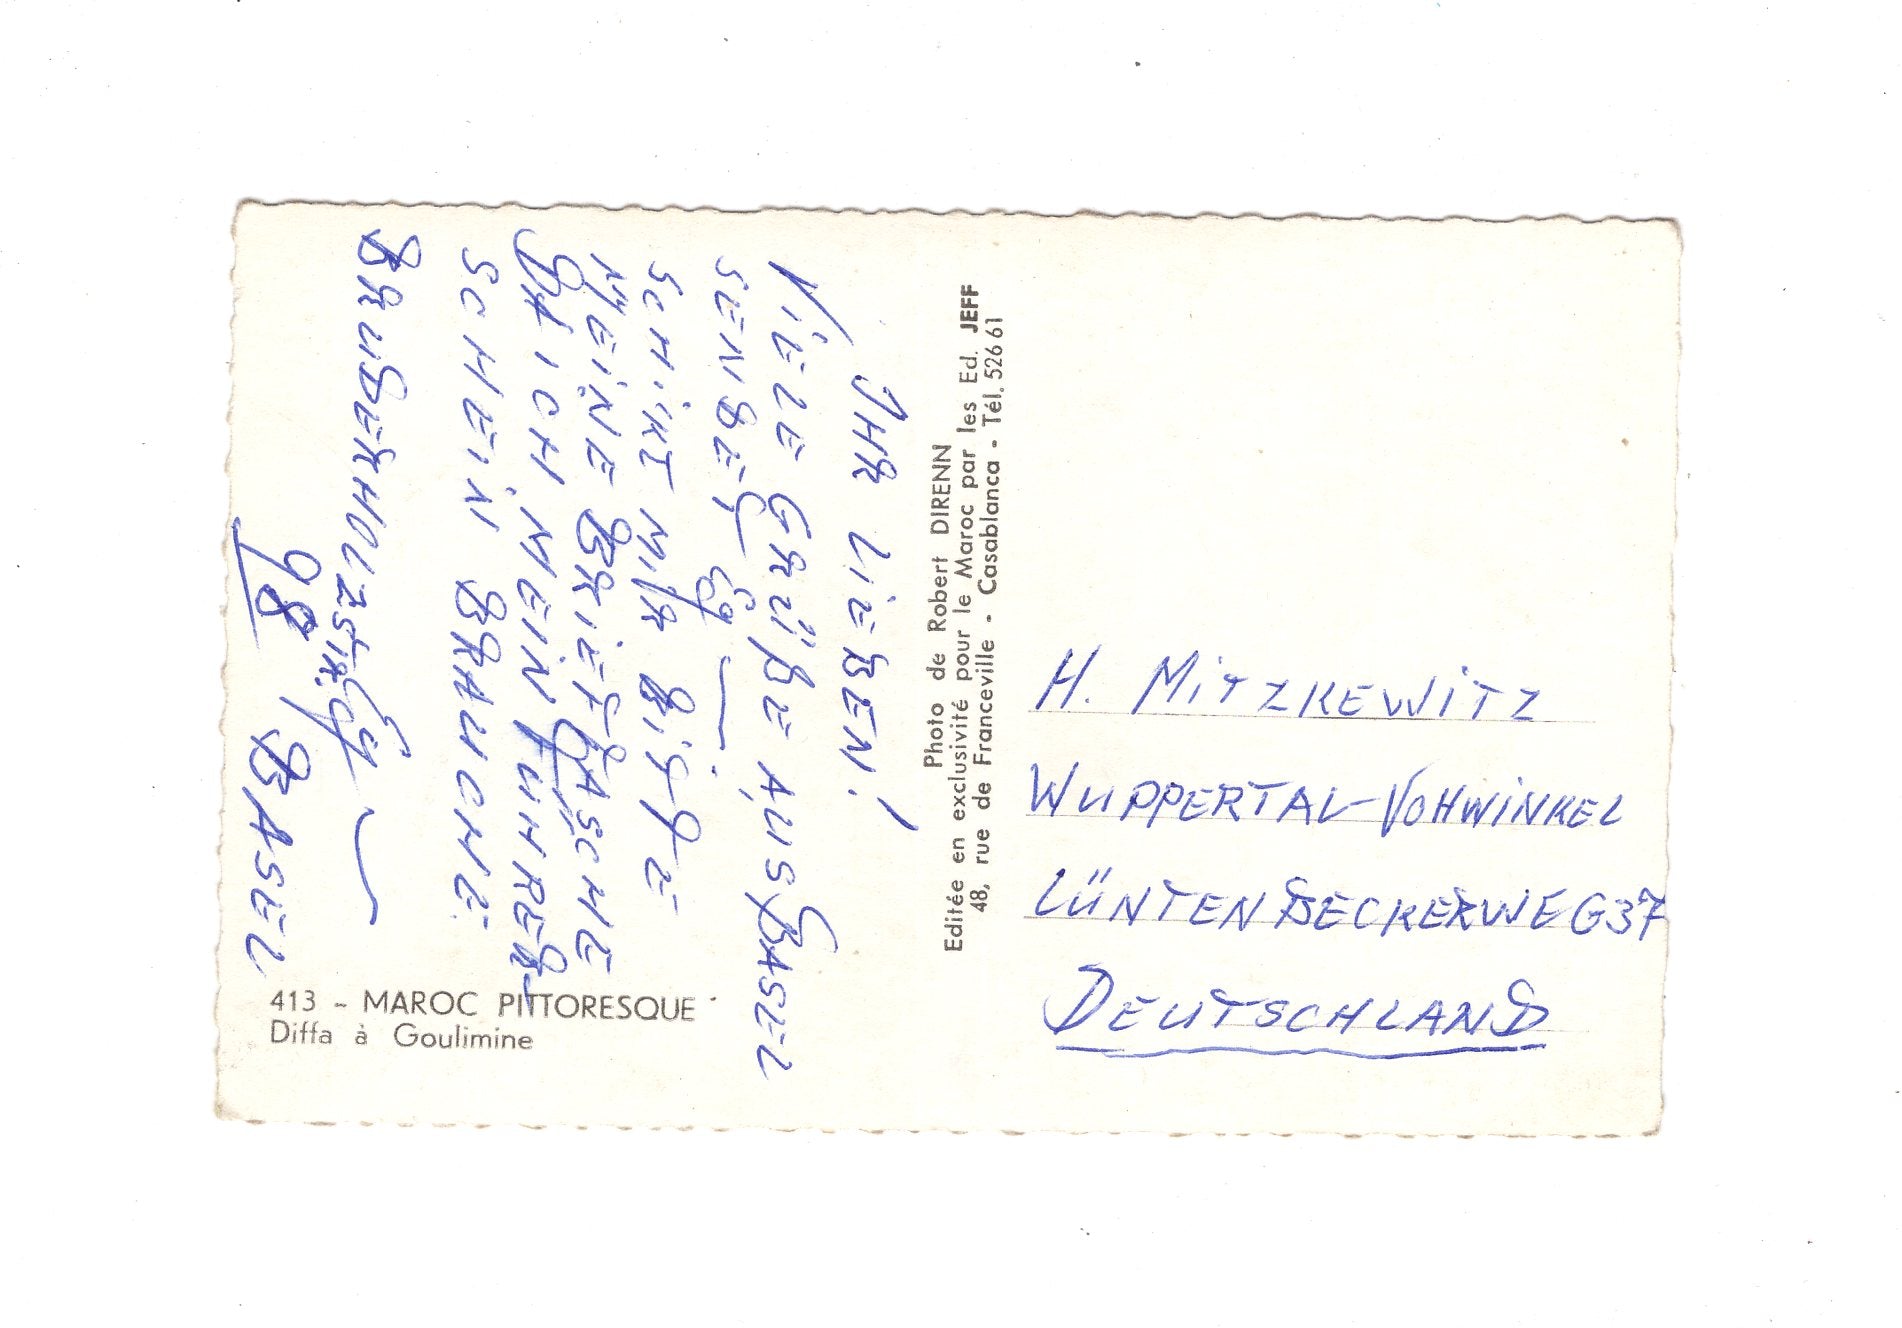 IHR LIEBEN!
VIELE GRÜßE AUS BASEL
SENDET
SCHIKT MIR BITTE
MEINE BRIEFTASCHE
DA ICH MEIN FUHRER-
SCHEIN BRAUCHE.
BRUDERHOLZSTR.
98 BASEL
413 - MAROC PITTORESQUE
Diffa à Goulimine
Photo de Robert DIRENN
Editée en exclusivité pour le Maroc par les Ed. JEFF
48, rue de Franceville - Casablanca - Tél. 526 61
H. MITZKEWITZ
WUPPERTAL-VOHWINKEL
LÜNTENBECKERWEG 37
DEUTSCHLAND